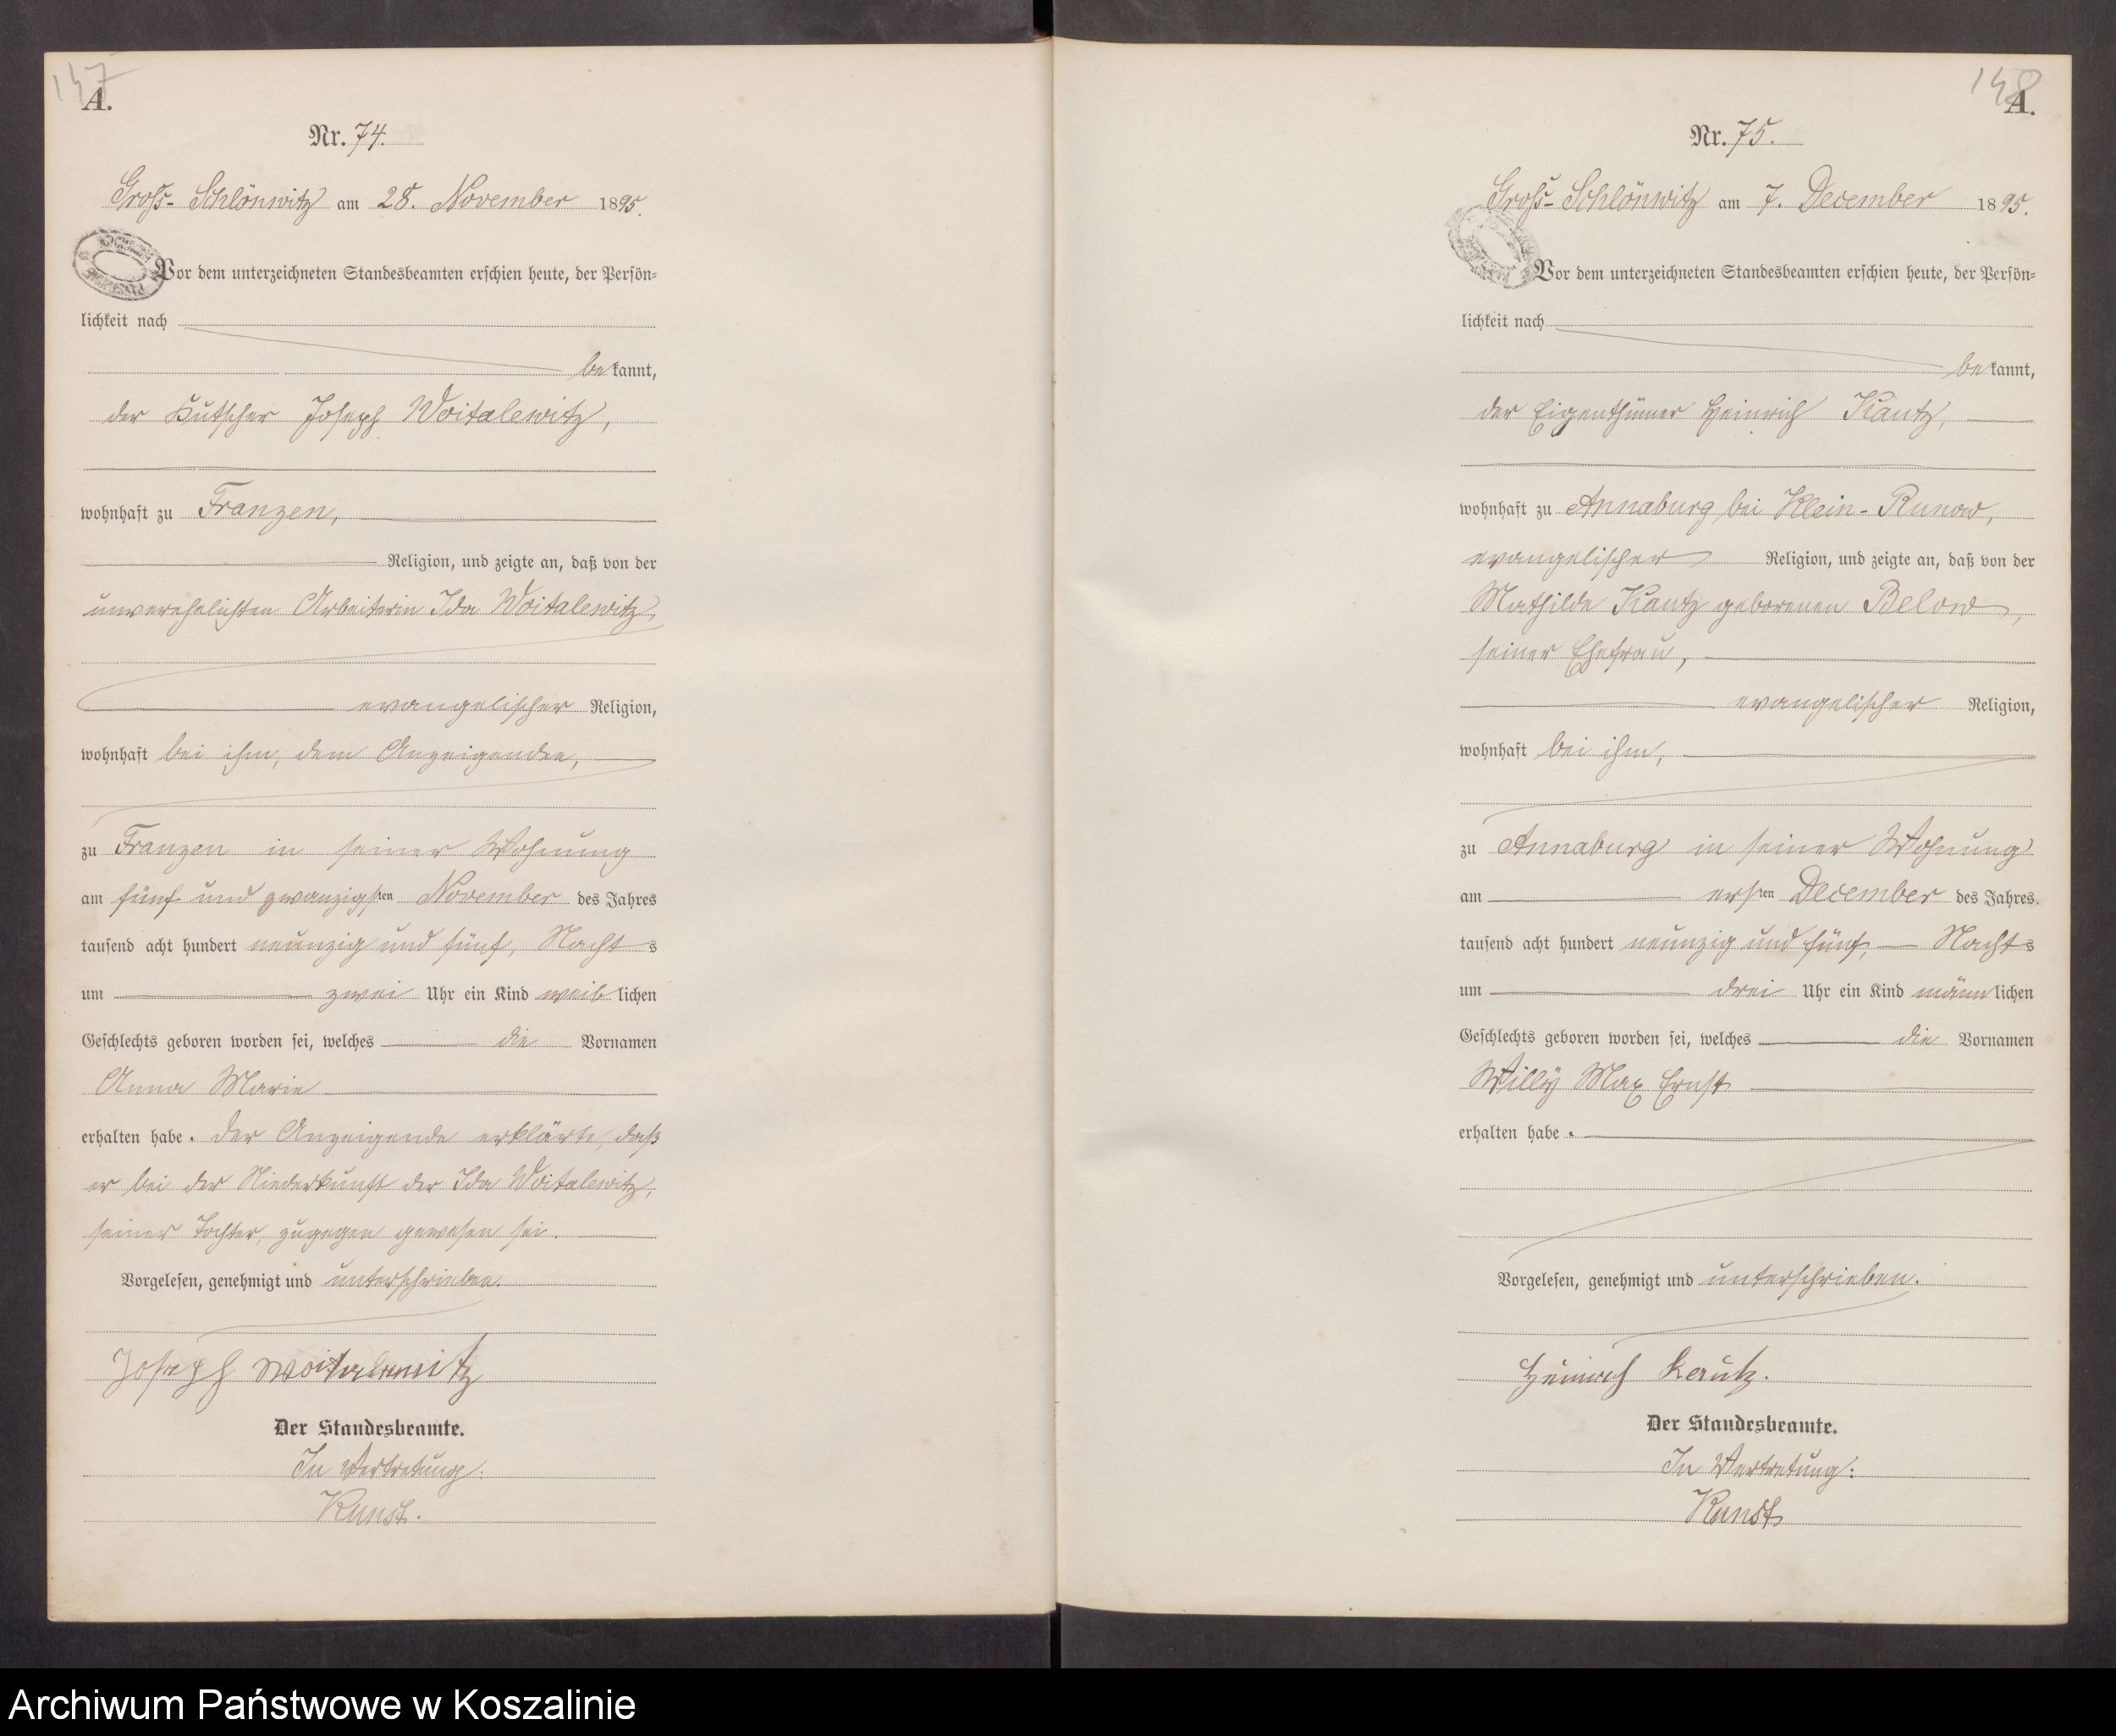 147
A.
Nr. 74.
Groß-Schlönwitz am 28. November 1895.
Vor dem unterzeichneten Standesbeamten erschien heute, der Persön-
lichkeit nach
bekannt,
der Kutscher Joseph Woitalewitz,
wohnhaft zu Franzen,
Religion, und zeigte an, daß von der
unverehelichten Arbeiterin Ida Woitalewitz,
evangelischer Religion,
wohnhaft bei ihm, dem Anzeigenden,
zu Franzen in seiner Wohnung
am fünf und zwanzigsten November des Jahres
tausend acht hundert neunzig und fünf, Nachts
um zwei Uhr ein Kind weiblichen
Geschlechts geboren worden sei, welches die Vornamen
Anna Marie
erhalten habe. Der Anzeigende erklärte, daß
er bei der Niederkunft der Ida Woitalewitz,
seiner Tochter, zugegen gewesen sei.
Vorgelesen, genehmigt und unterschrieben.
Joseph Woitalewitz
Der Standesbeamte.
In Vertretung:
Kunst.
148
A.
Nr. 75.
Groß-Schlönwitz am 7. December 1895.
Vor dem unterzeichneten Standesbeamten erschien heute, der Persön-
lichkeit nach
bekannt,
der Eigenthümer Heinrich Kautz,
wohnhaft zu Annaburg bei Klein-Runow,
evangelischer Religion, und zeigte an, daß von der
Mathilde Kautz geborenen Below,
seiner Ehefrau,
evangelischer Religion,
wohnhaft bei ihm,
zu Annaburg in seiner Wohnung
am ersten December des Jahres
tausend acht hundert neunzig und fünf, Nachts
um drei Uhr ein Kind männlichen
Geschlechts geboren worden sei, welches die Vornamen
Willy Max Ernst
erhalten habe.
Vorgelesen, genehmigt und unterschrieben.
Heinrich Kautz.
Der Standesbeamte.
In Vertretung:
Kunst
Archiwum Państwowe w Koszalinie